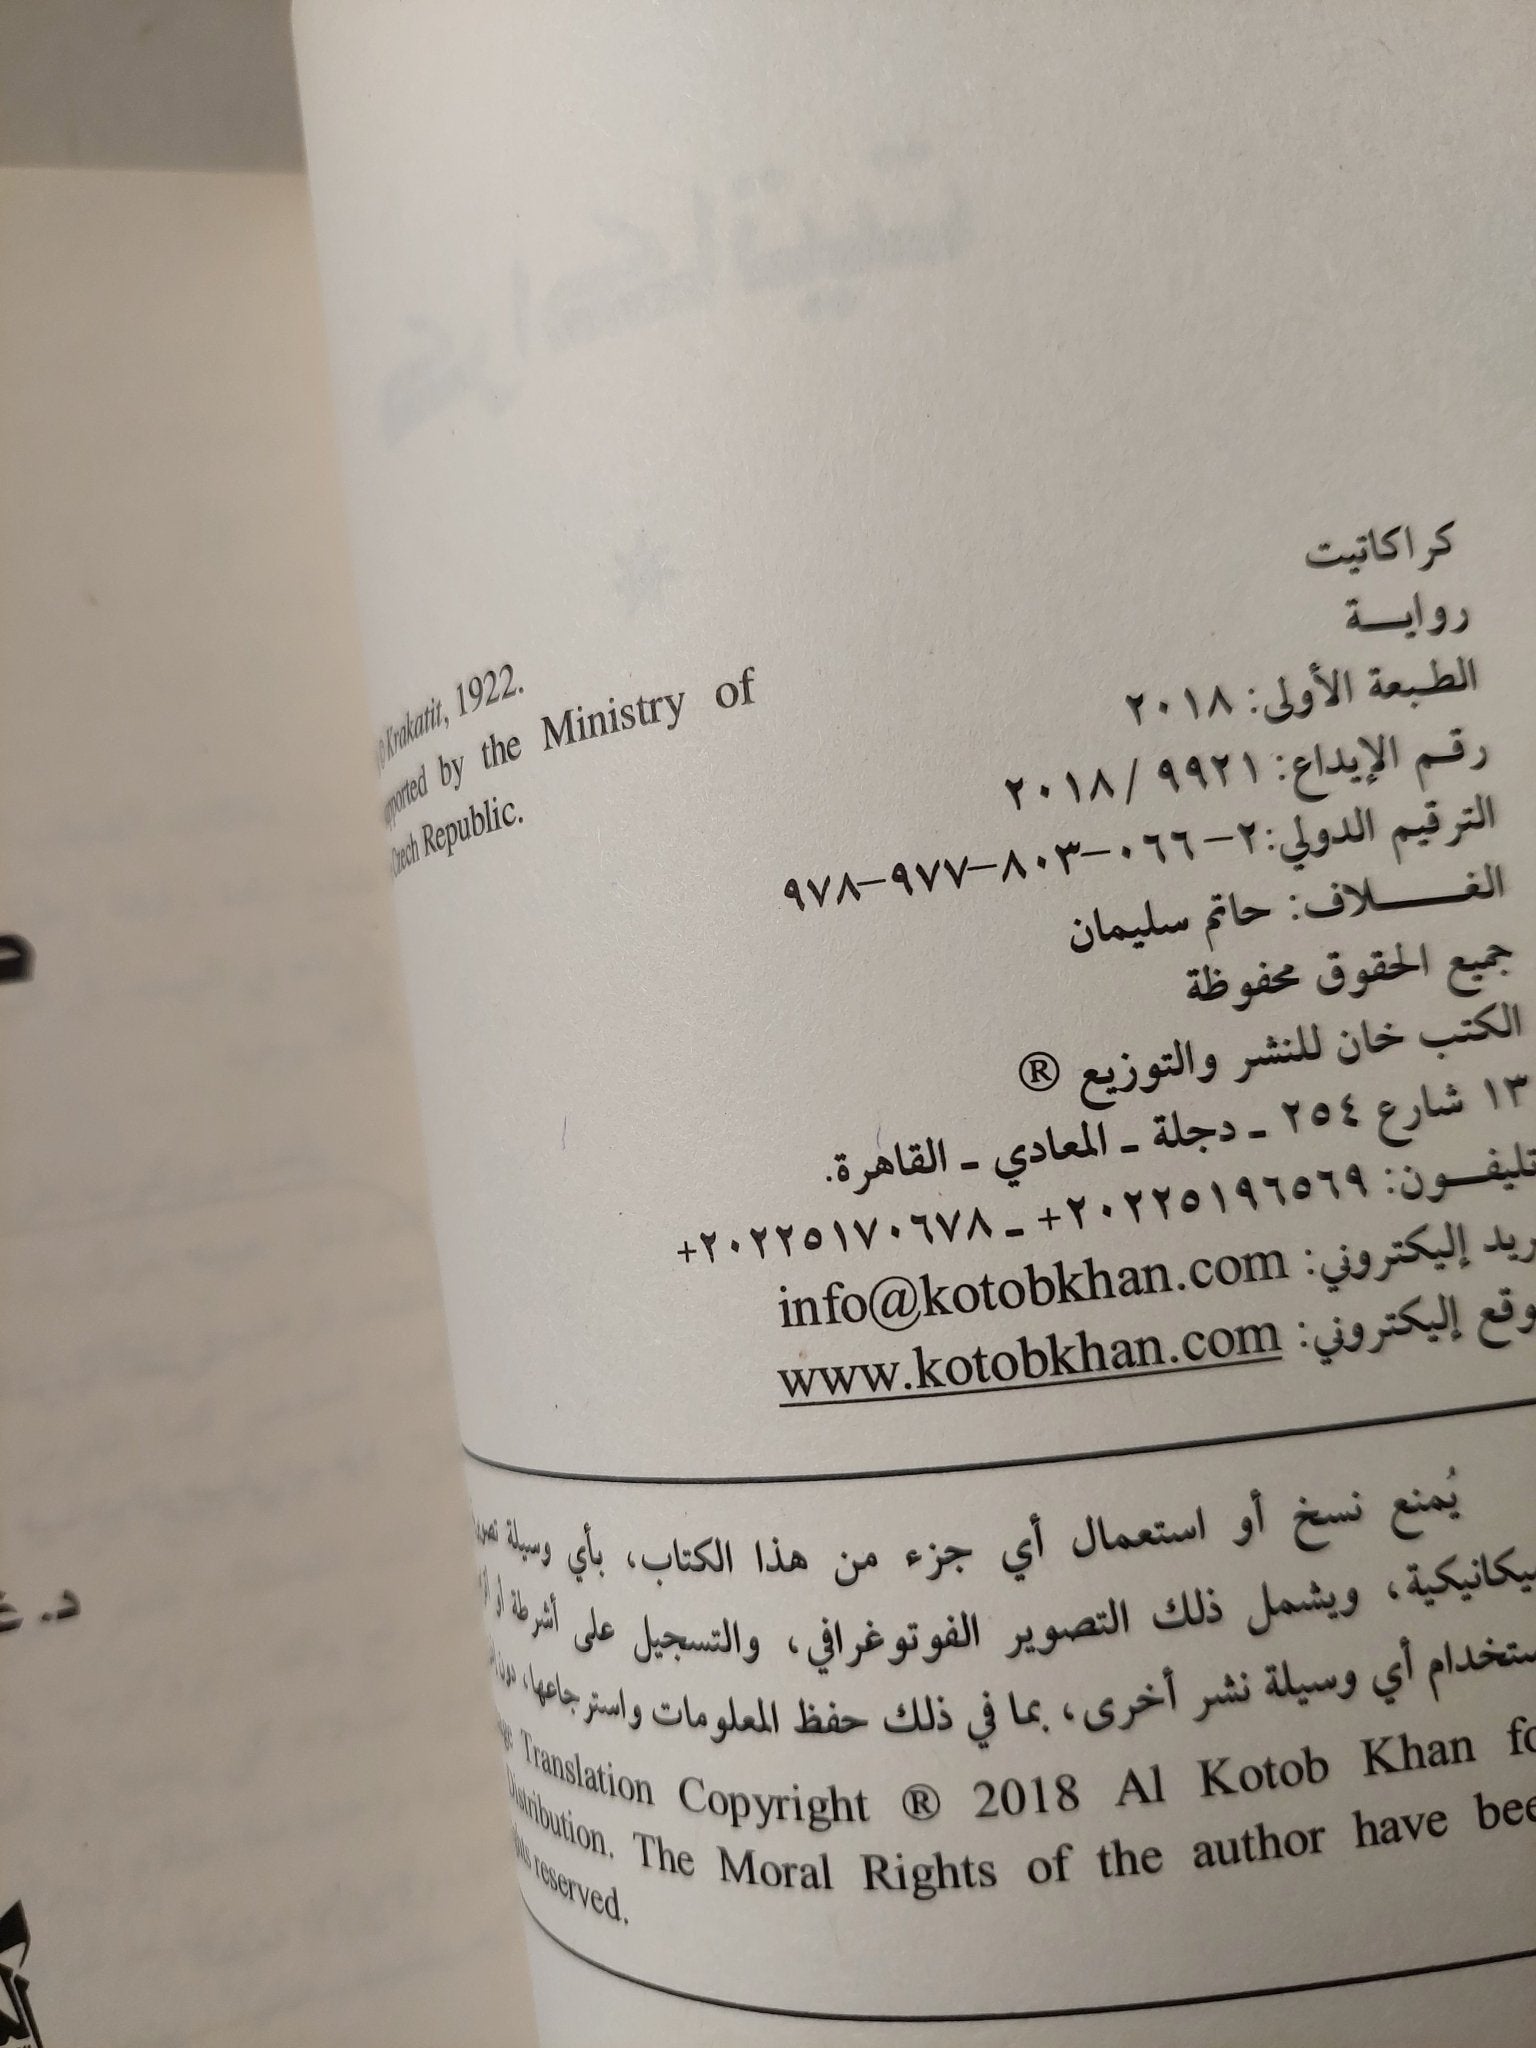 كراكاتيت
روايـــة
الطبعة الأولى: ٢٠١٨
رقم الإيداع: ٩٩٢١ / ٢٠١٨
الترقيم الدولي: ٢-٠٦٦-٨٠٣-٩٧٧-٩٧٨
الغـــــلاف: حاتم سليمان
جميع الحقوق محفوظة
الكتب خان للنشر والتوزيع ®
١٣ شارع ٢٥٤ ـ دجلة ـ المعادي ـ القاهرة.
تليفـــون: ٢٠٢٢٥١٩٦٥٦٩+ ـ ٢٠٢٢٥١٧٠٦٧٨+
إليكتروني: info@kotobkhan.com
إليكتروني: www.kotobkhan.com
Krakatit, 1922.
by the Ministry of
Czech Republic.
يُمنع نسخ أو استعمال أي جزء من هذا الكتاب، بأي وسيلة
ويشمل ذلك التصوير الفوتوغرافي، والتسجيل على أشرطة أو
أي وسيلة نشر أخرى، بما في ذلك حفظ المعلومات واسترجاعها، دون
Translation Copyright ® 2018 Al Kotob Khan
Distribution. The Moral Rights of the author have
reserved.
د.